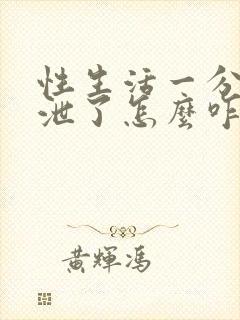 性生活一分
泄了怎麼咋
黃輝馮